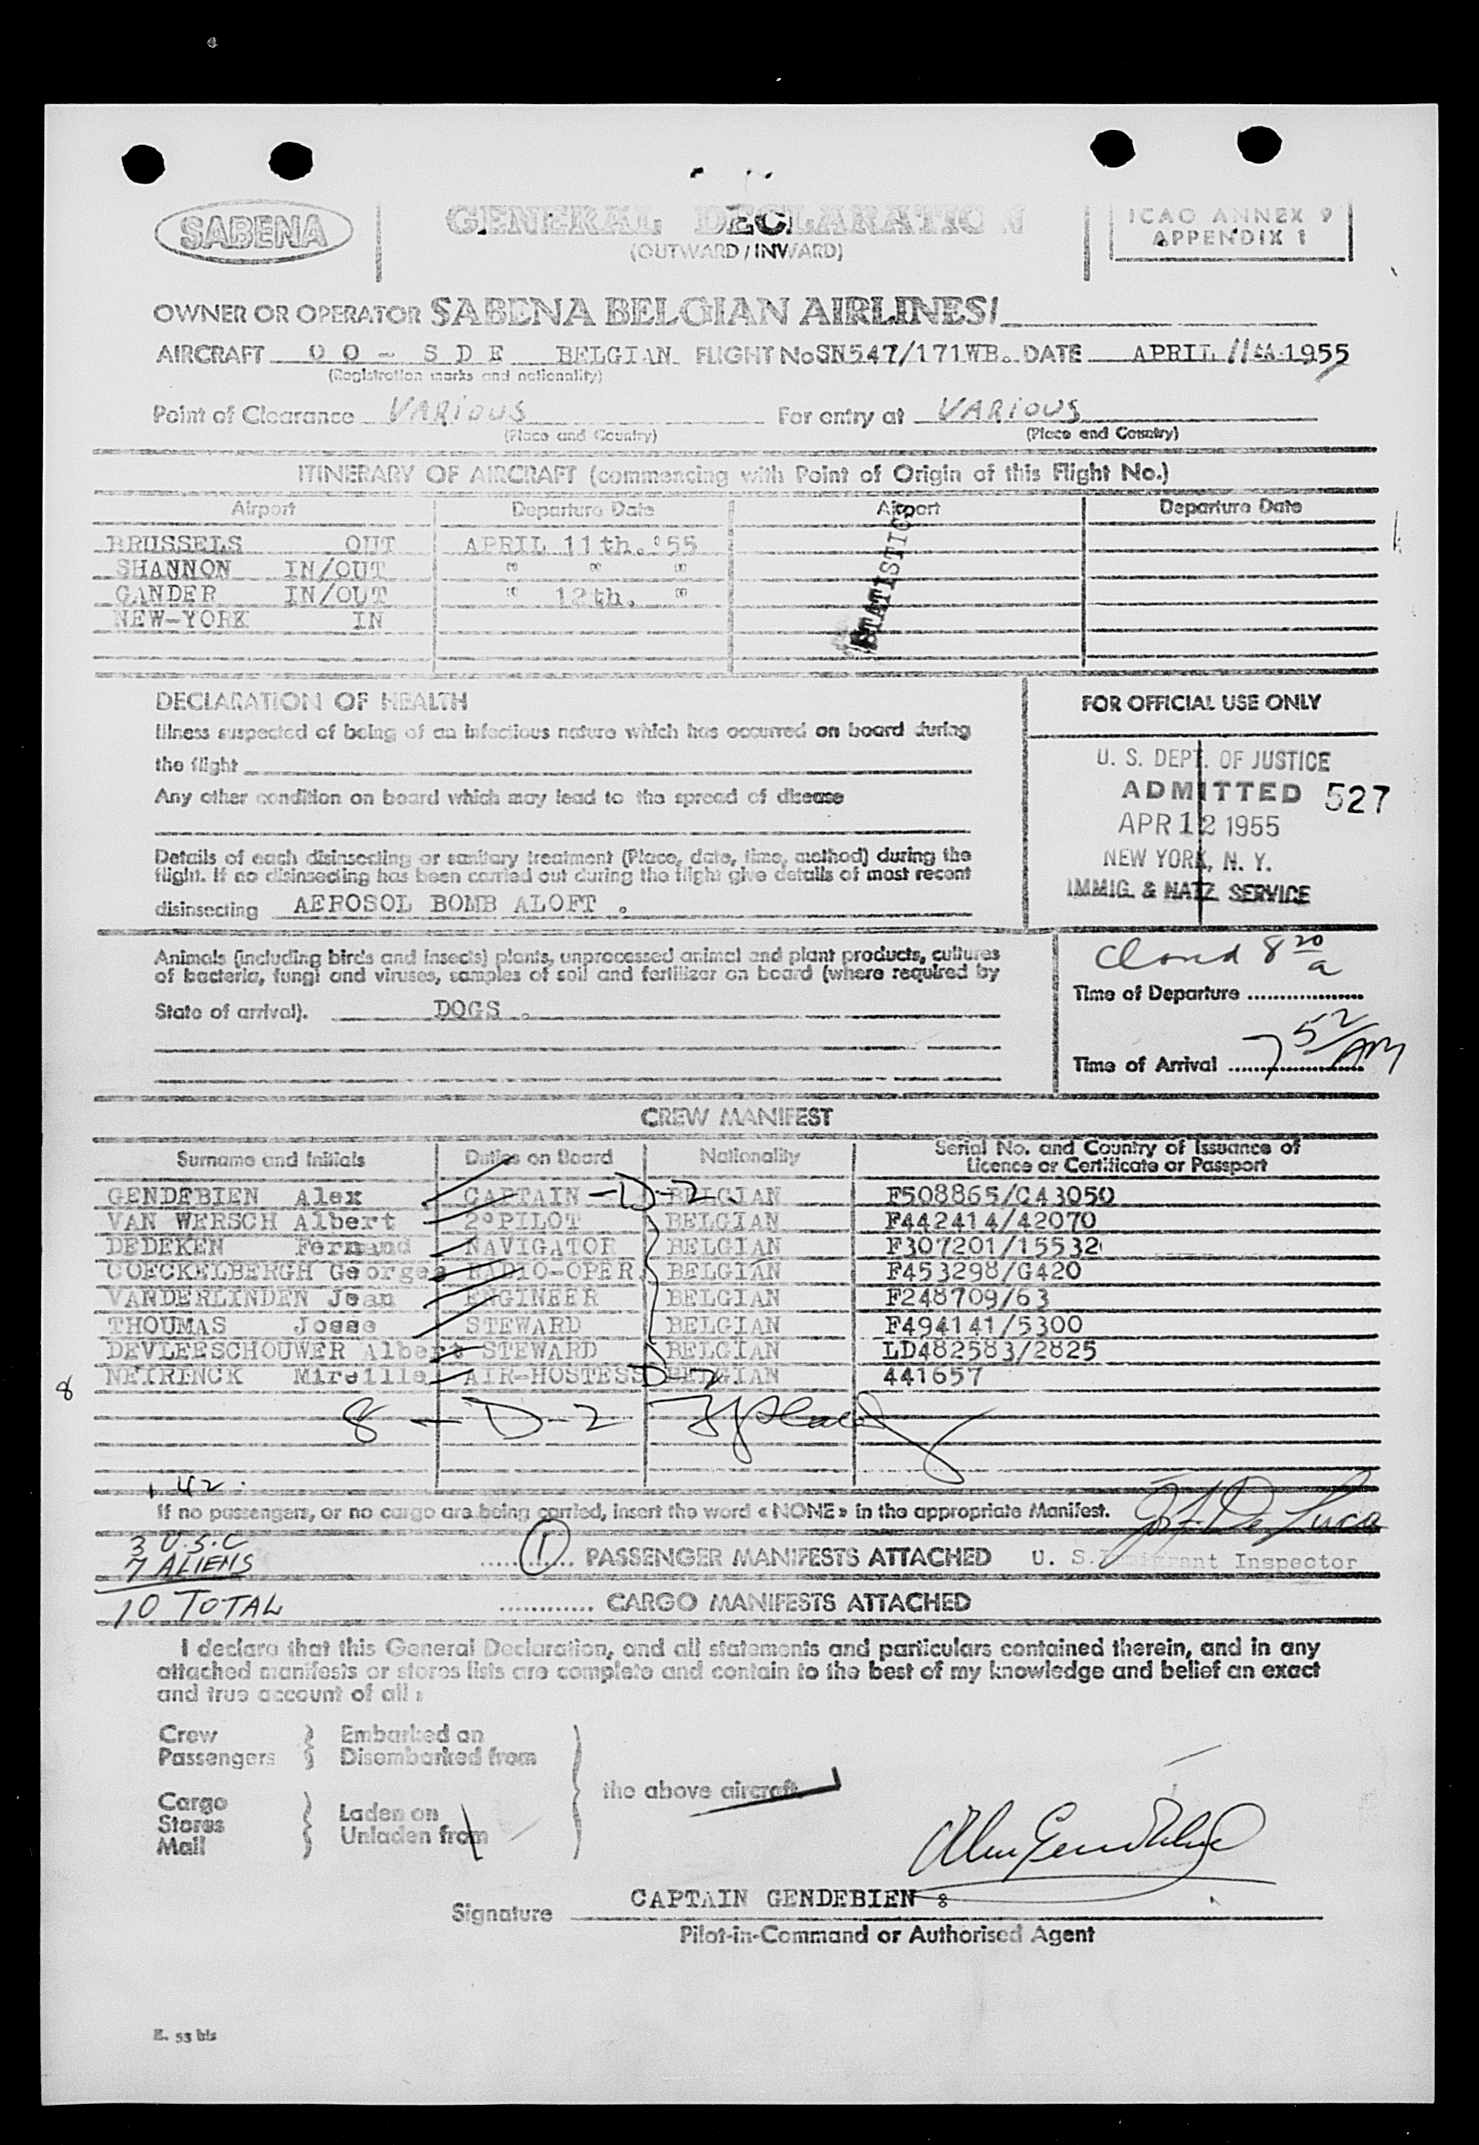 SABENA
GENERAL DECLARATION
(OUTWARD / INWARD)
ICAO ANNEX 9
APPENDIX 1
OWNER OR OPERATOR SABENA BELGIAN AIRLINES/
AIRCRAFT O O - S D E BELGIAN FLIGHT No SN547/171WB. DATE APRIL 11 1955
(Registration marks and nationality)
Point of Clearance VARIOUS For entry at VARIOUS
(Place and Country) (Place and Country)
ITINERARY OF AIRCRAFT (commencing with Point of Origin of this Flight No.)
Airport Departure Date Airport Departure Date
BRUSSELS OUT APRIL 11th.°55
SHANNON IN/OUT " " "
GANDER IN/OUT " 12th. "
NEW-YORK IN
STATISTICS
DECLARATION OF HEALTH
Illness suspected of being of an infectious nature which has occurred on board during
the flight
Any other condition on board which may lead to the spread of disease
Details of each disinsecting or sanitary treatment (Place, date, time, method) during the
flight. If no disinsecting has been carried out during the flight give details of most recent
disinsecting AEROSOL BOMB ALOFT .
FOR OFFICIAL USE ONLY
U. S. DEPT. OF JUSTICE
ADMITTED 527
APR 12 1955
NEW YORK, N. Y.
IMMIG. & NATZ. SERVICE
Animals (including birds and insects) plants, unprocessed animal and plant products, cultures
of bacteria, fungi and viruses, samples of soil and fertilizer on board (where required by
State of arrival). DOGS .
8 20 a
Time of Departure
Time of Arrival 7 52 AM
CREW MANIFEST
Surname and Initials Duties on Board Nationality Serial No. and Country of Issuance of
Licence or Certificate or Passport
GENDEBIEN Alex CAPTAIN - D-2 BELGIAN F508865/C43050
VAN WERSCH Albert 2°PILOT BELGIAN F442414/42070
DEDEKEN Fernand NAVIGATOR BELGIAN F307201/15532
COECKELBERGH Georges RADIO-OPER. BELGIAN F453298/G420
VANDERLINDEN Jean ENGINEER BELGIAN F248709/63
THOUMAS Josse STEWARD BELGIAN F494141/5300
DEVLEESCHOUWER Albert STEWARD BELGIAN LD482583/2825
8 NEIRINCK Mireille AIR-HOSTESS D-2 BELGIAN 441657
8 - D-2
42
If no passengers, or no cargo are being carried, insert the word « NONE » in the appropriate Manifest.
3 U.S.C
7 ALIENS
10 TOTAL
1 PASSENGER MANIFESTS ATTACHED U. S. Immigrant Inspector
CARGO MANIFESTS ATTACHED
I declare that this General Declaration, and all statements and particulars contained therein, and in any
attached manifests or stores lists are complete and contain to the best of my knowledge and belief an exact
and true account of all :
Crew Embarked on
Passengers Disembarked from
the above aircraft.
Cargo
Stores Laden on
Mail Unladen from
Alex Gendebien
CAPTAIN GENDEBIEN
Signature
Pilot-in-Command or Authorised Agent
E. 53 bis